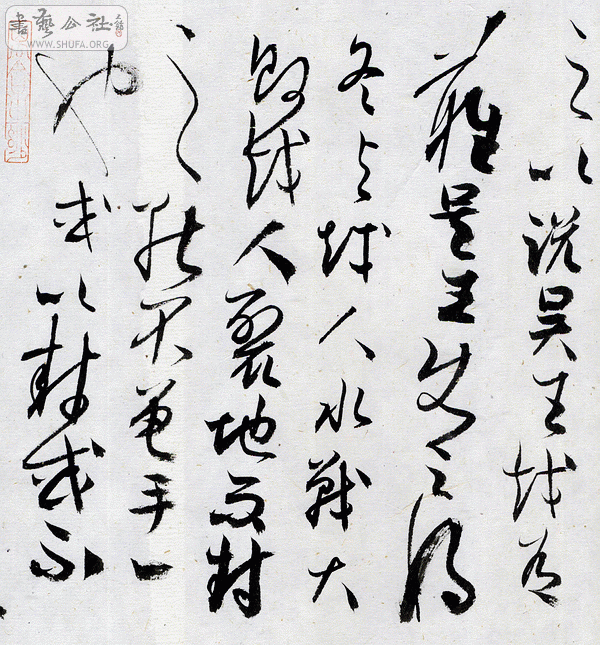 之以說吳王越有
難吳王使之將
冬与越人水戰大
敗越人裂地而封
之能不龜手一
也或以封或不
書藝公社
WWW.SHUFA.ORG